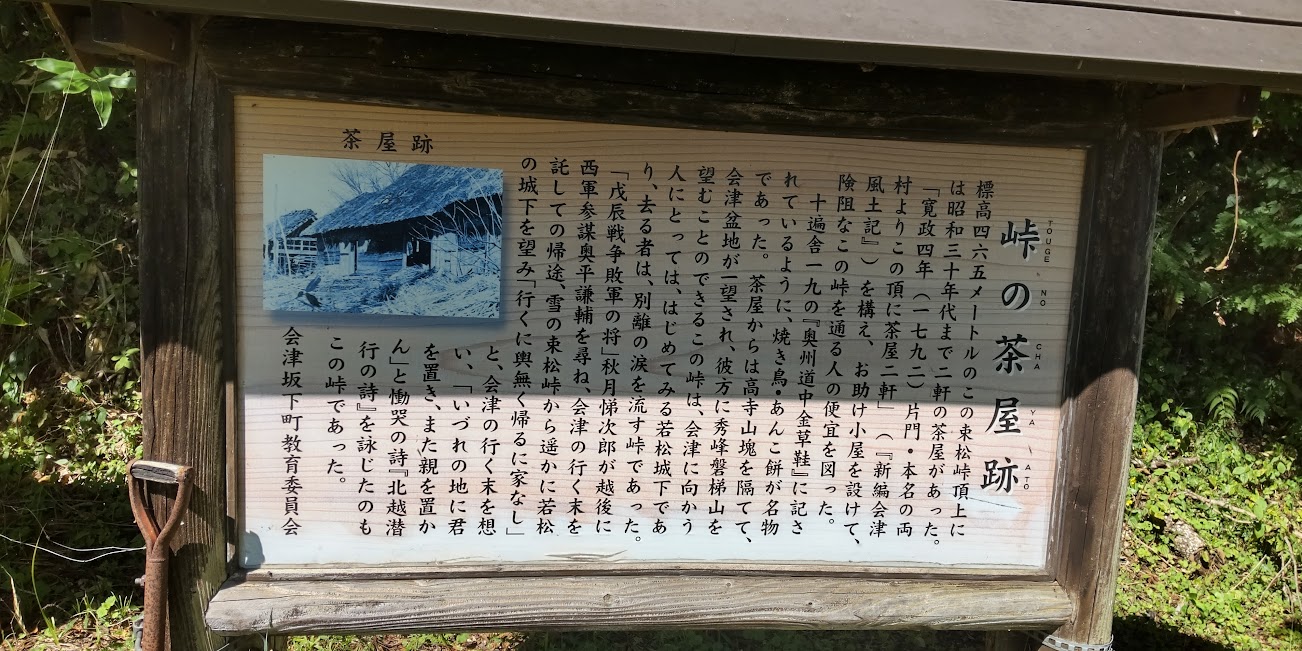 峠の茶屋跡
TOUGE NO CHA YA ATO
標高四六五メートルのこの束松峠頂上に
は昭和三十年代まで二軒の茶屋があった。
「寛政四年（一七九二）片門・本名の両
村よりこの頂に茶屋二軒」（『新編会津
風土記』）を構え、お助け小屋を設けて、
険阻なこの峠を通る人の便宜を図った。
十遍舎一九の『奥州道中金草鞋』に記さ
れているように、焼き鳥・あんこ餅が名物
であった。茶屋からは高寺山塊を隔てて、
会津盆地が一望され、彼方に秀峰磐梯山を
望むことのできるこの峠は、会津に向かう
人にとっては、はじめてみる若松城下であ
り、去る者は、別離の涙を流す峠であった。
「戊辰戦争敗軍の将」秋月悌次郎が越後に
西軍参謀奥平謙輔を尋ね、会津の行く末を
託しての帰途、雪の束松峠から遥かに若松
の城下を望み「行くに輿無く帰るに家なし」
と、会津の行く末を想
い、「いづれの地に君
を置き、また親を置か
ん」と慟哭の詩『北越潜
行の詩』を詠じたのも
この峠であった。
会津坂下町教育委員会
茶屋跡